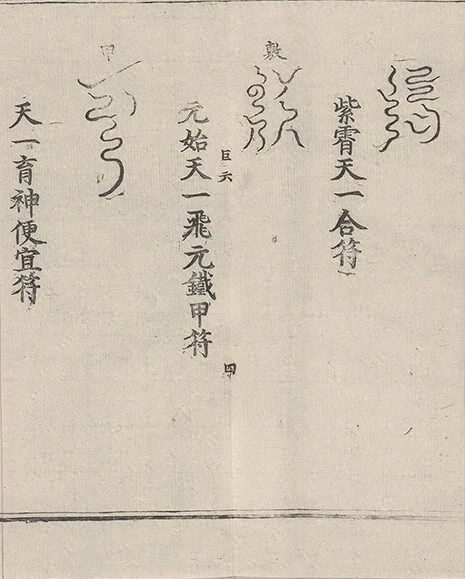 紫霄天一合符
敷
巨六
元始天一飛元鐵甲符
甲
天一育神便宜符